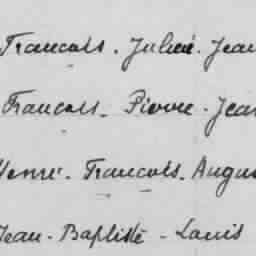 Francois. Julien. Jean
Francois. Pierre. Jean
Henri. Francois. Augus
Jean-Baptiste-Louis